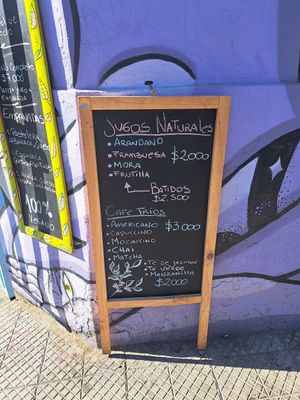 $7.000
EMPANADAS
100%
JUGOS NATURALES
• ARANDANO
• FRAMBUESA $2.000
• MORA
• FRUTILLA
BATIDOS
$2.500
CAFE FRIOS
• AMERICANO $3.000
• CAPUCCINO
• MOCACCINO
• CHAI
• MATCHA
• TE DE JAZMIN
• TE VERDE
• MANZANILLA
$2000